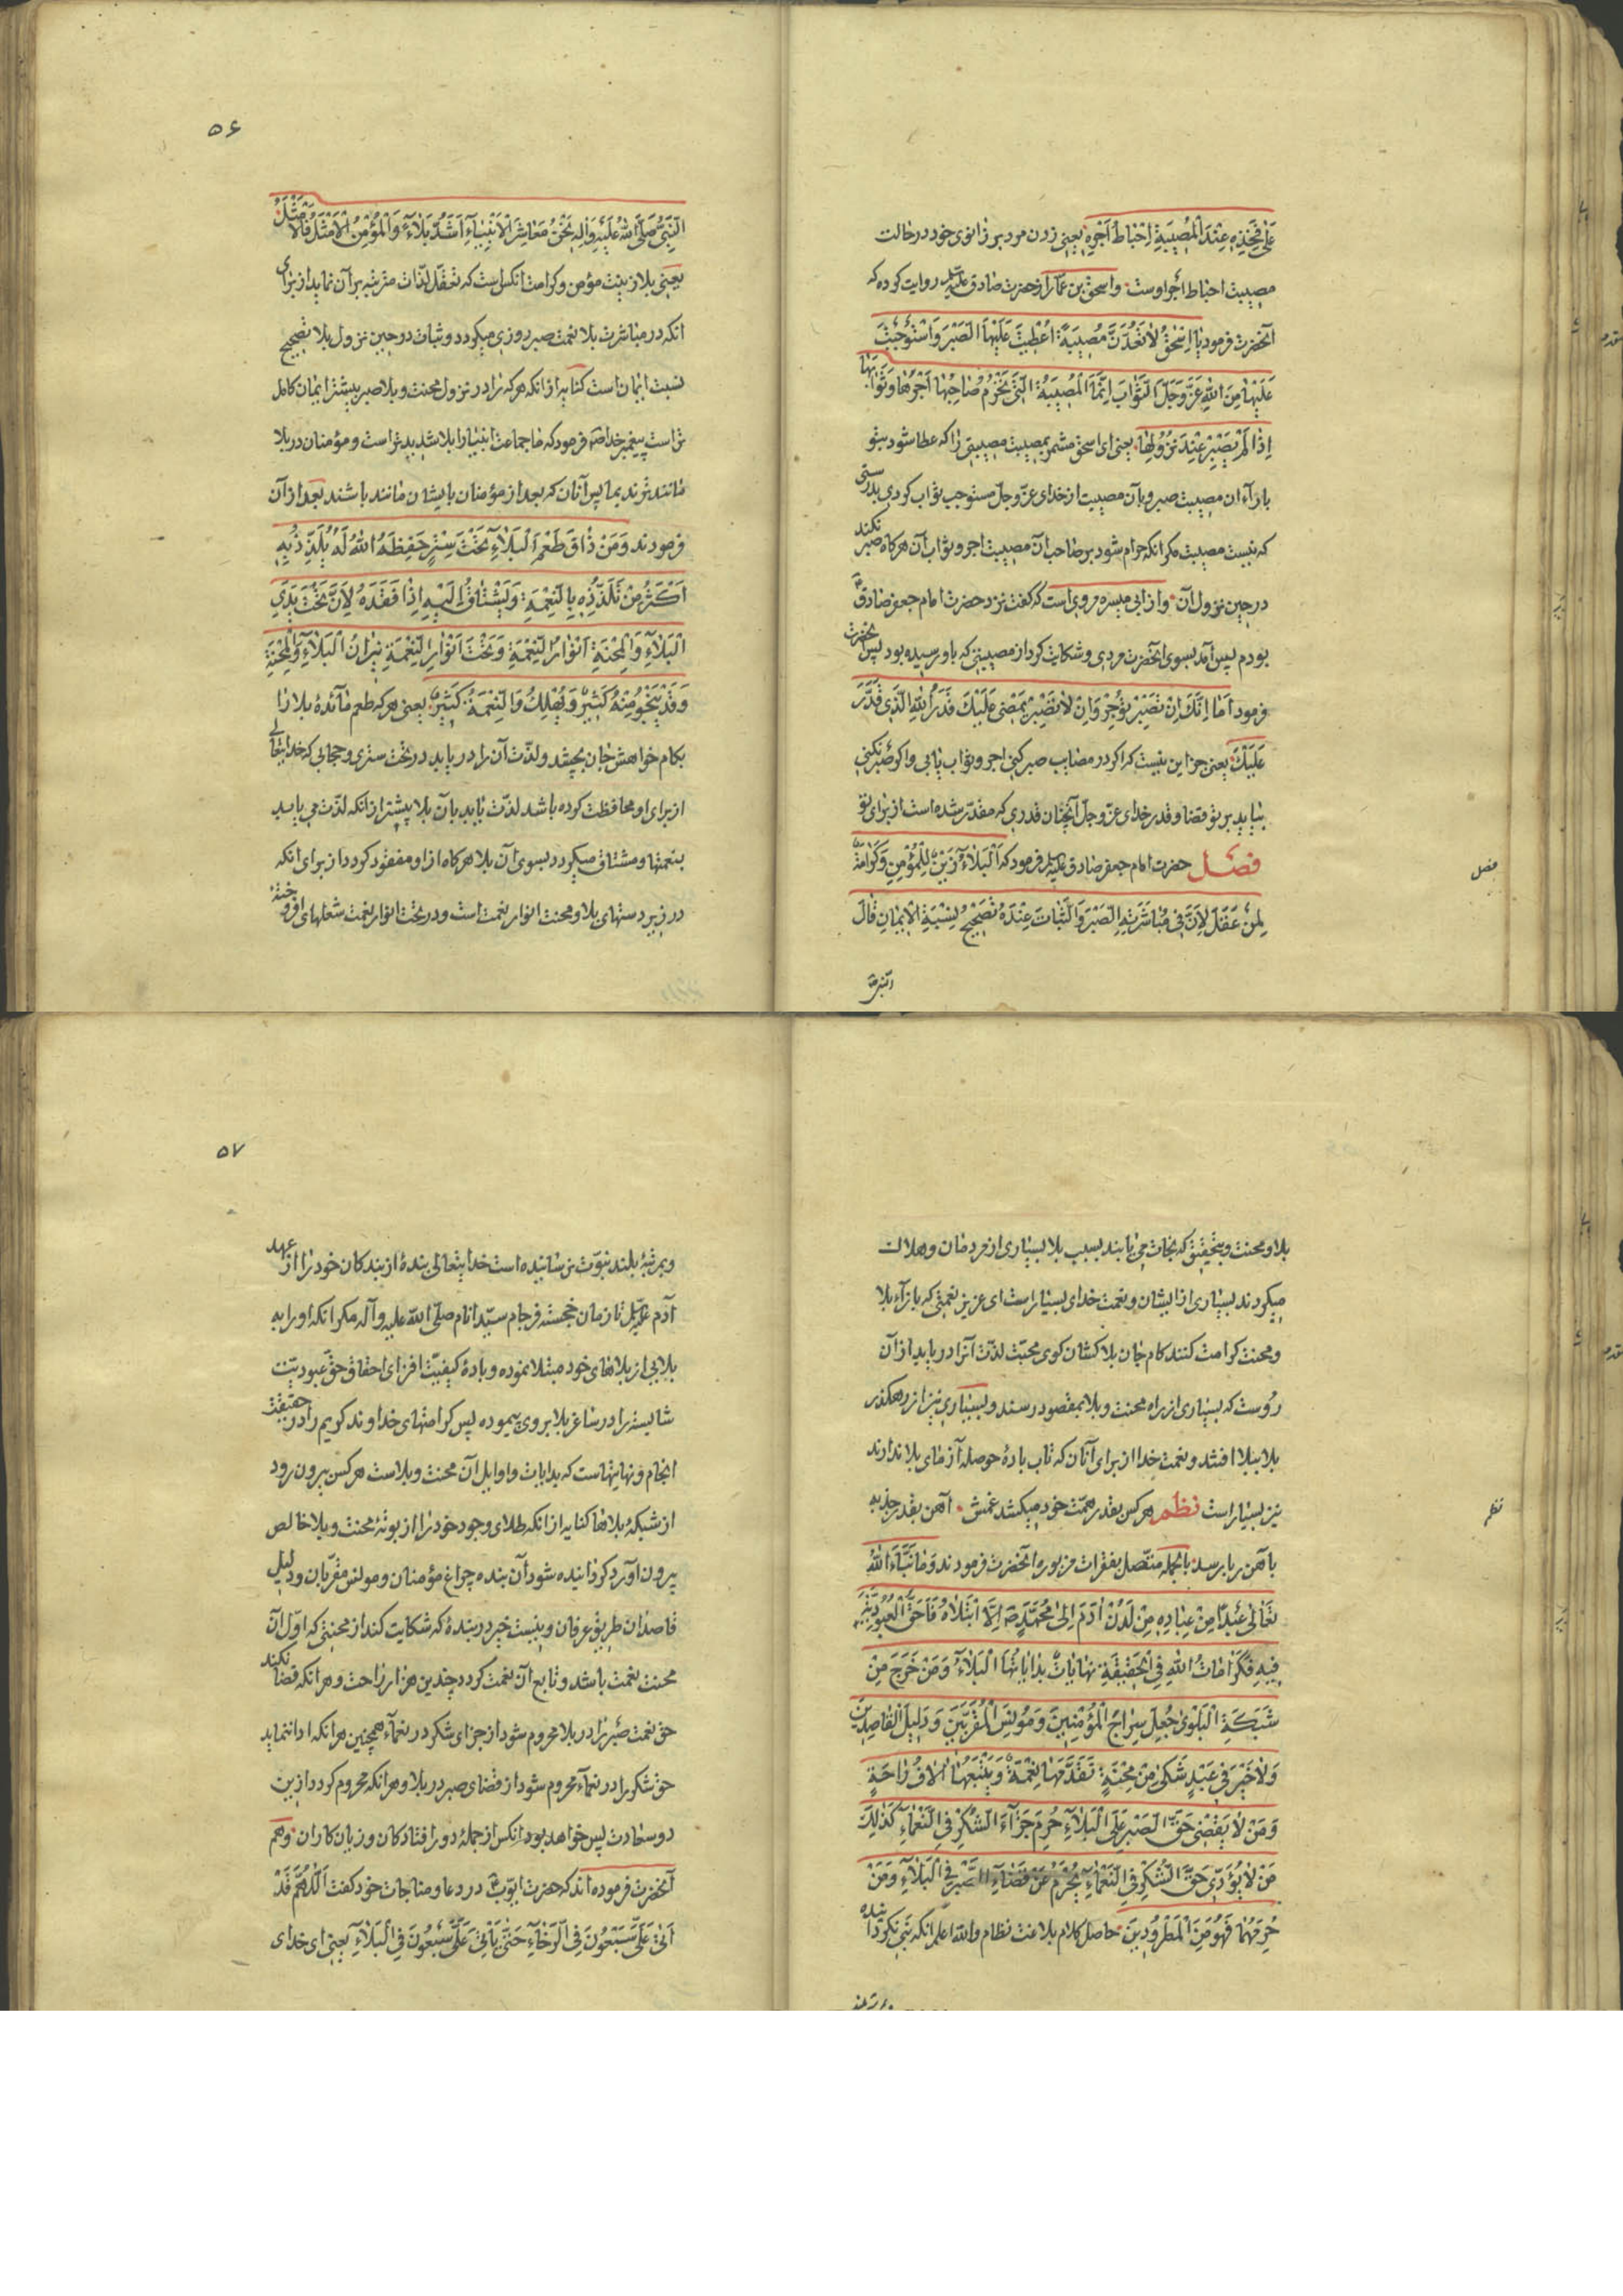 عَلٰی فَخِذِهِ عِنْدَ الْمُصِیبَةِ اِحْبَاطُ اَجْرِهِ یعنی زدن مرد بر زانوی خود در حالت
مصیبت احباط اجر اوست واسحق بن عمار از حضرت صادق علیه السلام روایت کرده که
آنحضرت فرمود یٰا اِسْحٰقُ لٰا تَعُدَّنَّ مُصِیبَةً اُعْطِیتَ عَلَیْهَا الصَّبْرَ وَاسْتَوْجَبْتَ
عَلَیْهٰا مِنَ اللّٰهِ عَزَّ وَجَلَّ الثَّوٰابَ اِنَّمَا الْمُصِیبَةُ الَّتِی یُحْرَمُ صٰاحِبُهٰا اَجْرَهٰا وَثَوٰابَهٰا
اِذٰا لَمْ یَصْبِرْ عِنْدَ نُزُولِهٰا یعنی ای اسحق مشمر بمصیبت مصیبتی را که عطا شود بتو
بازآء ان مصیبت صبر و بآن مصیبت از خدای عزّ وجلّ مستوجب ثواب کردی بدرستی
که نیست مصیبت مکر انکه حرام شود بر صاحب آن مصیبت اجر و ثواب آن هرکاه صبر نکند
در حین نزول آن واز ابی میسره مروی است که کفت نزد حضرت امام جعفر صادقؑ
بودم پس آمد بسوی آنحضرت مردی و شکایت کرد از مصیبتی که باو رسیده بود پس آنحضرت
فرمود اَمٰا اِنَّكَ اِنْ تَصْبِرْ تُؤْجَرْ وَاِنْ لٰا تَصْبِرْ یَمْضِی عَلَیْكَ قَدَرُ اللّٰهِ الَّذِی قَدَّرَ
عَلَیْكَ یعنی جز این نیست که اکر در مصایب صبر کنی اجر و ثواب یابی و اکر صبر نکنی
بیاید بر تو قضا و قدر خدای عزّ وجلّ آنچنان قدری که مقدّر شده است از برای تو
فصل حضرت امام جعفر صادق علیه السلام فرمود که اَلْبَلٰاءُ زَیْنٌ لِلْمُؤْمِنِ وَکَرٰامَةٌ
لِمَنْ عَقَلَ لِاَنَّ فِی مُبٰاشَرَتِهِ الصَّبْرَ وَالثَّبٰاتَ عِنْدَهُ تَصْحِیحُ نِسْبَةِ الْاِیمٰانِ قٰالَ
النبی
فصل
۵۶
النَّبِیُّ صَلَّی اللّٰهُ عَلَیْهِ وَاٰلِهِ نَحْنُ مَعٰاشِرَ الْاَنْبِیٰاءِ اَشَدُّ بَلٰاءً وَالْمُؤْمِنُ الْاَمْثَلُ فَالْاَمْثَلُ
یعنی بلا زینت مؤمن و کرامت انکس است که تعقّل لذّات مترتبه بر آن نماید از برای
انکه در مباشرت بلا نعمت صبر روزی میکردد و ثبات در حین نزول بلا تصحیح
نسبت ایمان است کنایه از انکه هرکه را در نزول محنت و بلا صبر بیشتر ایمان کامل
تر است پیغمبر خداؐ فرمود که ما جماعت انبیا را بلا شدید تر است و مؤمنان در بلا
مانند ترند بما پس آنان که بعد از مؤمنان بایشان مانند باشند بعد از آن
فرمودند وَمَنْ ذٰاقَ طَعْمَ الْبَلٰاءِ تَحْتَ سِتْرِ حَفِظَهُ اللّٰهُ لَهُ یُلَذِّذُ بِهِ
اَکْثَرَ مِنْ تَلَذُّذِهِ بِالنِّعْمَةِ وَیَشْتٰاقُ اِلَیْهِ اِذٰا فَقَدَهُ لِاَنَّ تَحْتَ یَدَیِ
الْبَلٰاءِ وَالْمِحْنَةِ اَنْوٰارُ النِّعْمَةِ وَتَحْتَ اَنْوٰارِ النِّعْمَةِ نِیرٰانُ الْبَلٰاءِ وَالْمِحْنَةِ
وَقَدْ یَنْجُو مِنْهُ کَثِیرٌ وَیَهْلِكُ وَالنِّعْمَةُ کَثِیرٌ یعنی هرکه طعم مآئدهٔ بلا را
بکام خواهش جان بچشد و لذّت آن را دریابد در تحت ستری و حجابی که خدایتعالی
از برای او محافظت کرده باشد لذّت یابد بآن بلا بیشتر از انکه لذّت می یابد
بنعمتها و مشتاق میکردد بسوی آن بلا هرکاه از او مفقود کردد از برای انکه
در زیر دستهای بلا و محنت انوار نعمت است و در تحت انوار نعمت شعلهای افروخته
بلا و محنت و بتحقیق که نجات می یابند بسبب بلا بسیاری از مردمان و هلاک
میکردند بسیاری از ایشان و نعمت خدای بسیار است ای عزیز نعمتی که بازآء بلا
و محنت کرامت کنند کام جان بلا کشان کوی محبّت لذّت آنرا دریابد از آن
روست که بسیاری از راه محنت و بلا بمقصود رسند و بسیاری نیز از رهکذر
بلا ببلا افتند و نعمت خدا از برای آنان که تاب بادهٔ حوصله آزمای بلا ندارند
نیز بسیار است نظم هرکس بقدر همّت خود میکشد غمش آهن بقدر جذبه
بآهن ربا رسد بالجمله متّصل بفقرات مزبوره آنحضرت فرمودند وَمٰا نَبَّاءَ اللّٰهُ
تَعٰالٰی عَبْدًا مِنْ عِبٰادِهِ مِنْ لَدُنْ اٰدَمَ اِلٰی مُحَمَّدٍؐ اِلَّا ابْتَلٰاهُ فَاَحَقَّ الْعُبُودِیَّةَ
فِیهِ فَکَرٰامٰاتُ اللّٰهِ فِی الْحَقِیقَةِ نِهٰایٰاتٌ بِدٰایٰاتُهَا الْبَلٰاءُ وَمَنْ خَرَجَ مِنْ
شَبَکَةِ الْبَلْوٰی جُعِلَ سِرٰاجَ الْمُؤْمِنِینَ وَمُونِسَ الْمُقَرَّبِینَ وَدَلِیلَ الْقٰاصِدِینَ
وَلٰا خَیْرَ فِی عَبْدٍ شَکٰی مِنْ مِحْنَةٍ تَقَدَّمَهٰا نِعْمَةٌ وَیَتْبَعُهٰا اٰلٰافُ رٰاحَةٍ
وَمَنْ لٰا یَقْضِی حَقَّ الصَّبْرِ عَلَی الْبَلٰاءِ حُرِمَ جَزٰاءَ الشُّکْرِ فِی النَّعْمٰاءِ کَذٰلِكَ
مَنْ لٰا یُؤَدِّی حَقَّ الشُّکْرِ فِی النَّعْمٰاءِ یُحْرَمُ عَنْ قَضٰاءِ الصَّبْرِ فِی الْبَلٰاءِ وَمَنْ
حُرِمَهُمٰا فَهُوَ مِنَ الْمَطْرُودِینَ حاصل کلام بلاغت نظام والله اعلم انکه نبی نکردانیده
نظم
۵۷
و بمرتبهٔ بلند نبوّت نرسانیده است خدایتعالی بندهٔ از بندکان خود را از عهد
آدم علیه السلام تا زمان خجسته فرجام سیّد انام صلّی الله علیه وآله مکر انکه او را به
بلایی از بلاهای خود مبتلا نموده و بادهٔ کیفیّت افزای احقاق حقّ عبودیّت
شایسته را در ساغر بلا بر وی پیموده پس کرامتهای خداوند کریم را در حقیقت
انجام و نهایتهاست که بدایات و اوایل آن محنت و بلاست هرکس بیرون رود
از شبکهٔ بلاها کنایه از انکه طلای وجود خود را از بوتهٔ محنت و بلا خالص
بیرون آورد کردانیده شود آن بنده چراغ مؤمنان و مونس مقرّبان و دلیل
قاصدان طریق عرفان و نیست خیر در بندهٔ که شکایت کند از محنتی که اوّل آن
محنت نعمت باشد و تابع آن نعمت کردد چندین هزار راحت و هر انکه قضا نکند
حق نعمت صبر را در بلا محروم شود از جزای شکر در نعمآء همچنین هر انکه ادا ننماید
حق شکر را در نعمآء محروم شود از قضای صبر در بلا و هر انکه محروم کردد از این
دو سعادت پس خواهد بود انکس از جملهٔ دور افتادکان و زیان کاران وهم
آنحضرت فرموده اند که حضرت ایّوبؑ در دعا و مناجات خود کفت اَللّٰهُمَّ قَدْ
اَتٰی عَلَیَّ سَبْعُونَ فِی الرَّخٰاءِ حَتّٰی یَأْتِیَ عَلَیَّ سَبْعُونَ فِی الْبَلٰاءِ یعنی ای خدای